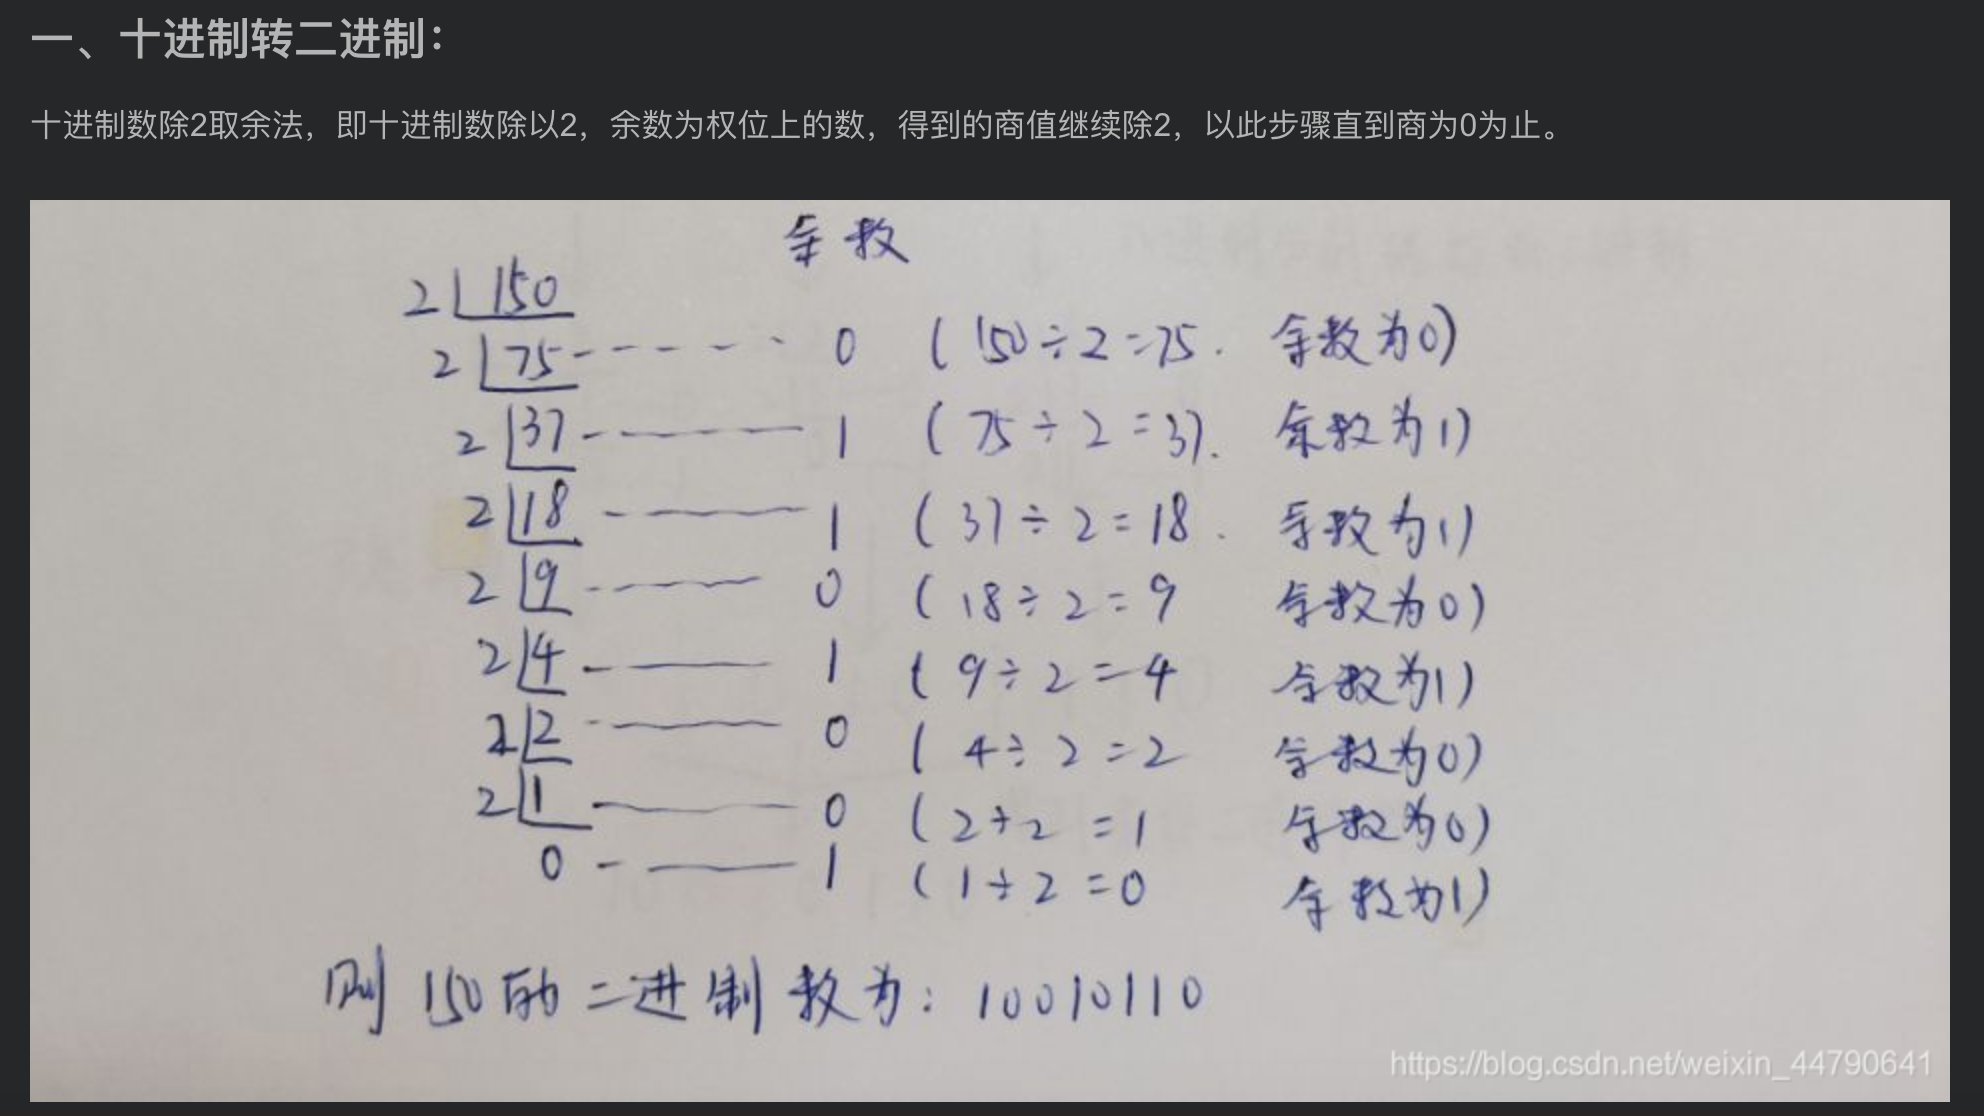 一、十进制转二进制：
十进制数除2取余法，即十进制数除以2，余数为权位上的数，得到的商值继续除2，以此步骤直到商为0为止。
余数
2 150
2 75 0 (150÷2=75. 余数为0)
2 37 1 (75÷2=37. 余数为1)
2 18 1 (37÷2=18. 余数为1)
2 9 0 (18÷2=9 余数为0)
2 4 1 (9÷2=4 余数为1)
2 2 0 (4÷2=2 余数为0)
2 1 0 (2÷2=1 余数为0)
0 1 (1÷2=0 余数为1)
则150的二进制数为：10010110
https://blog.csdn.net/weixin_44790641